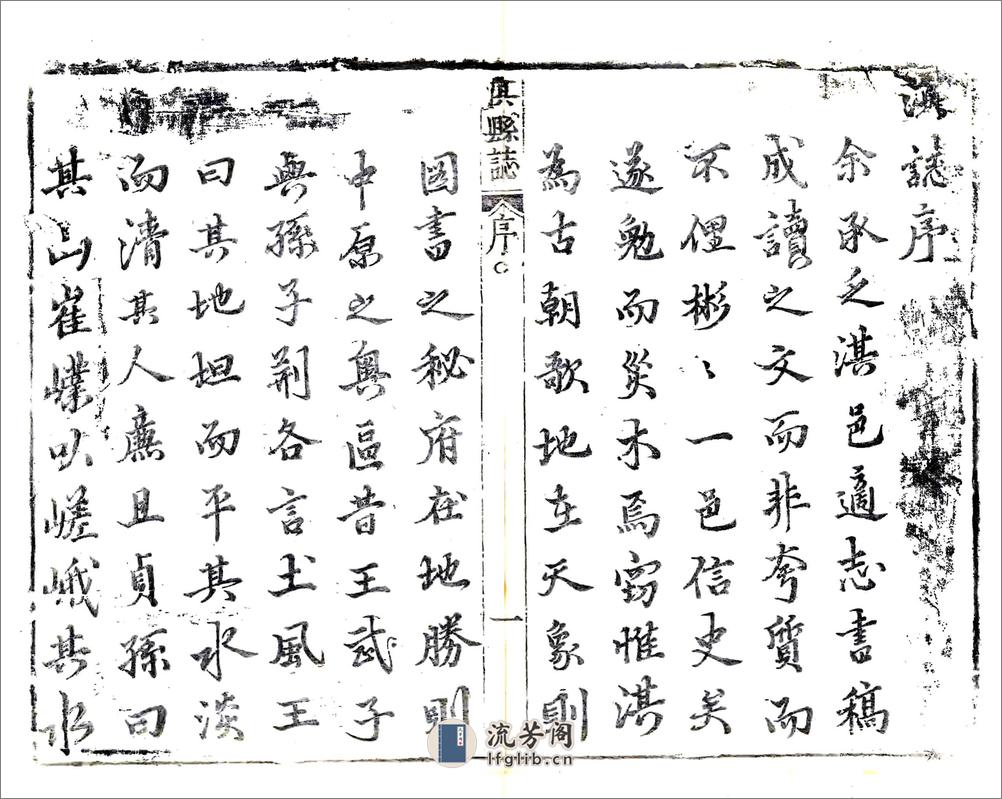 淇
誌序
余承乏淇邑適志書稿
成讀之文而非夸質而
不俚彬〻一邑信史矣
遂勉而災木焉竊惟淇
為古朝歌地在天象則
淇縣誌 序 一
圖書之秘府在地勝則
中原之奧區昔王武子
與孫子荊各言土風王
曰其地坦而平其水淡
而清其人廉且貞孫曰
其山嶊㠎以嵯峨其水
流芳阁
lfglib.cn